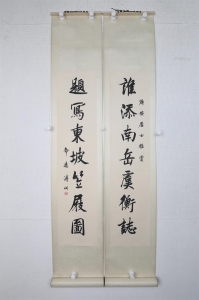 誰添南岳虞衡誌
題寫東坡笠屐圖